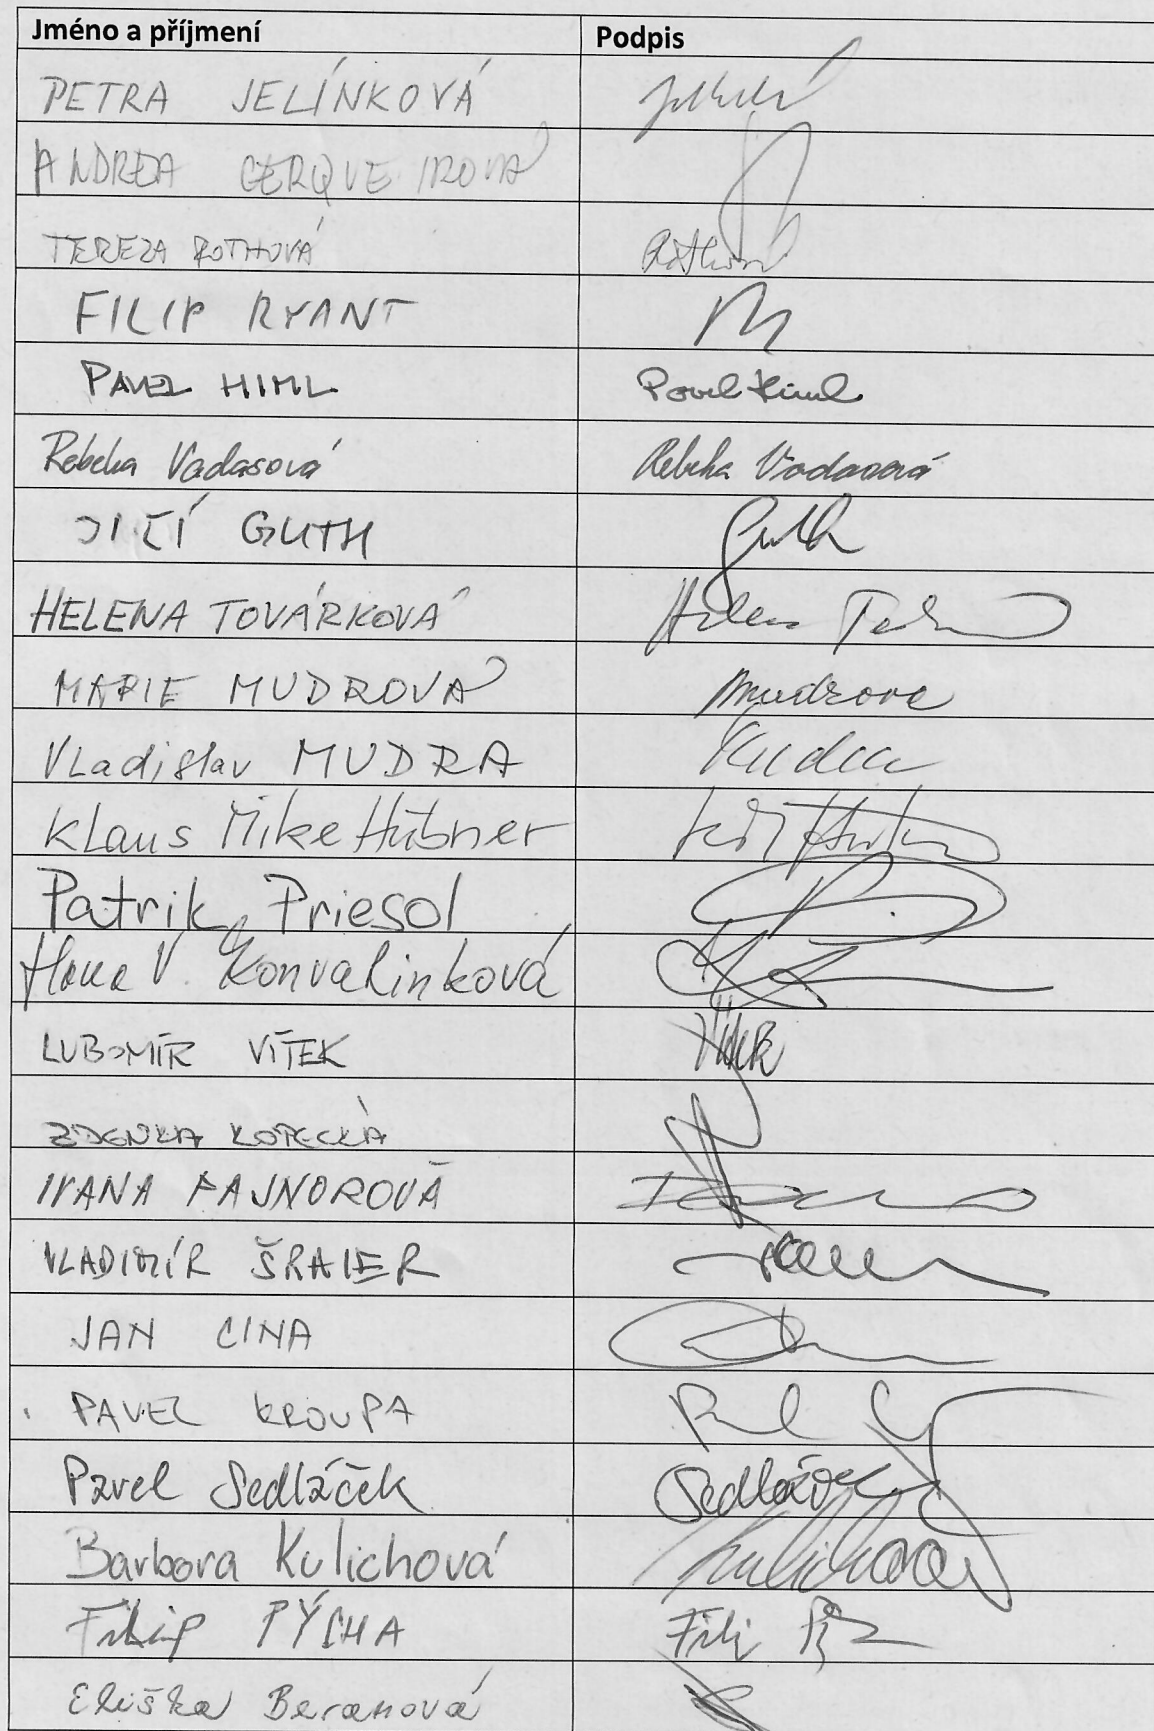 Jméno a příjmení Podpis
PETRA JELÍNKOVÁ
ANDREA CERQVEIROVÁ
TEREZA ROTHOVÁ Rothová
FILIP RYANT
PAVEL HIML Pavel Himl
Rebeka Vadasová Rebeka Vadasová
JIŘÍ GUTH Guth
HELENA TOVÁRKOVÁ
MARIE MUDROVÁ Mudrova
Vladislav MUDRA Mudra
Klaus Mike Hübner
Patrik Priesol
Hana V. Konvalinková
LUBOMÍR VÍTEK Vítek
ZDENKA KOPECKÁ
IVANA PAJNOROVÁ
VLADIMÍR ŠRAIER
JAN CINA
PAVEL KROUPA
Pavel Sedláček Sedláček
Barbora Kulichová Kulichová
Filip PÝCHA
Eliška Beranová